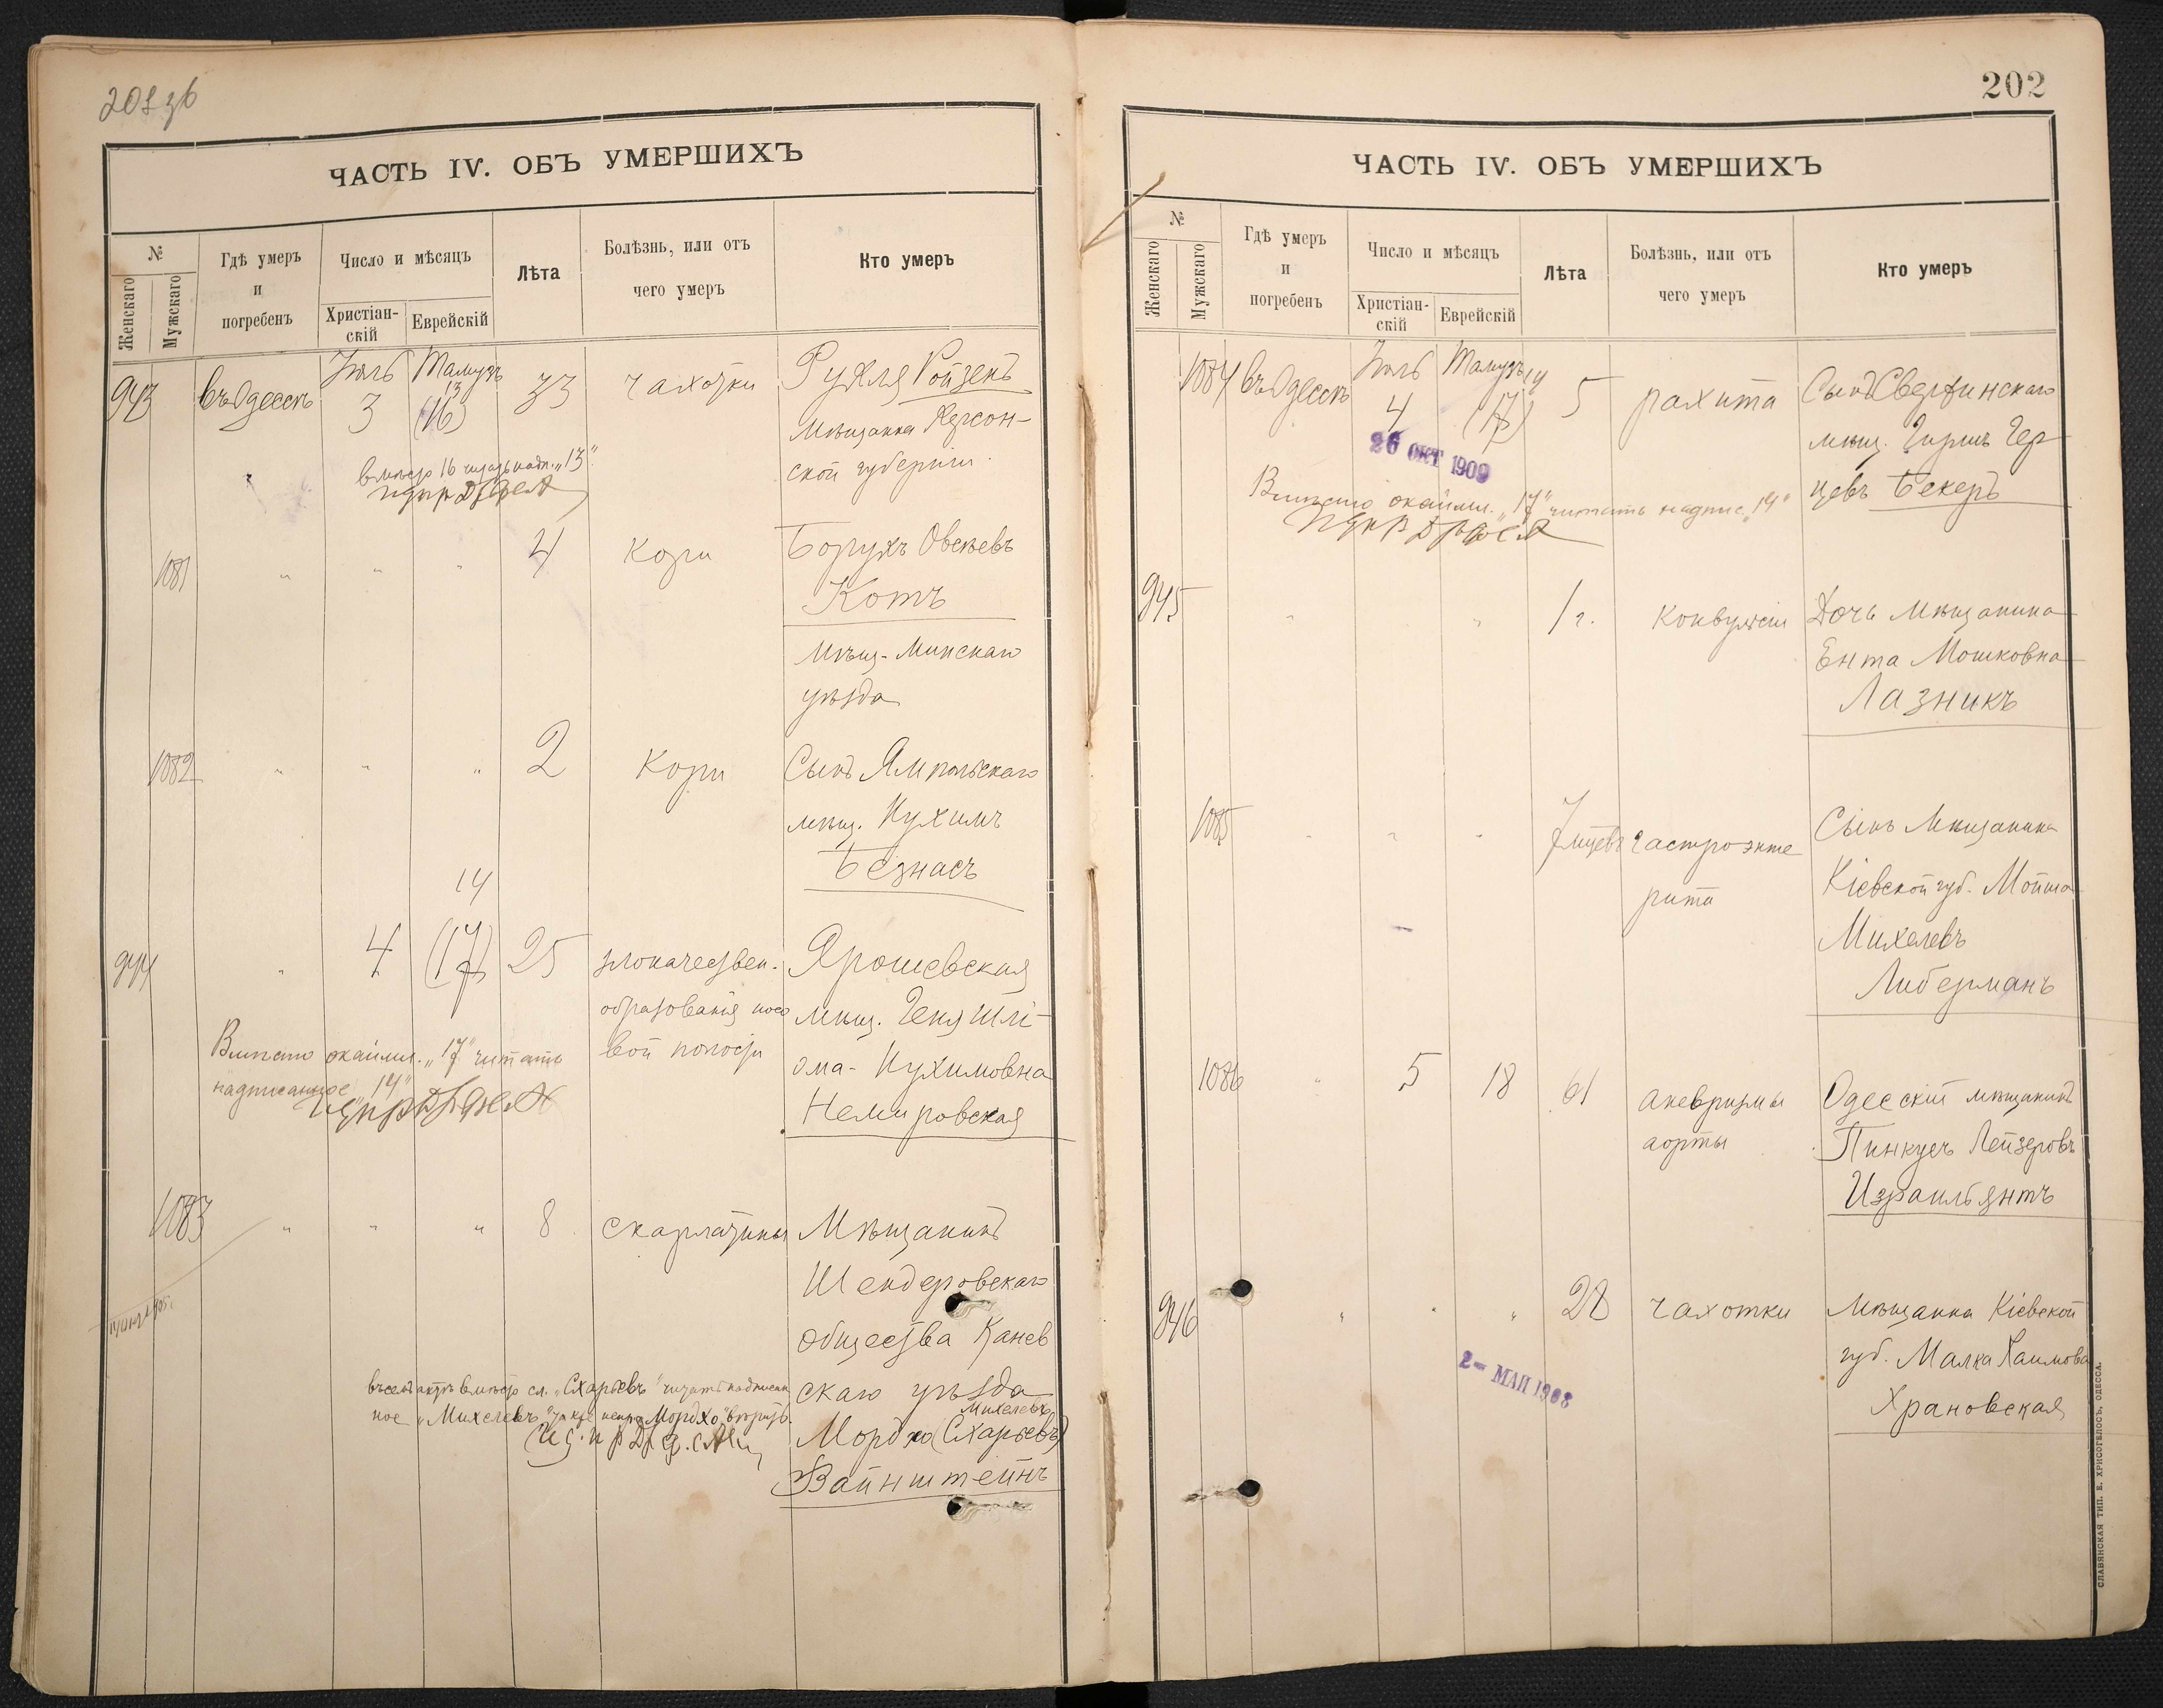 201 зб
ЧАСТЬ IV. ОБЪ УМЕРШИХЪ
№
Женскаго
Мужскаго
Гдѣ умеръ
и
погребенъ
Число и мѣсяцъ
Христіан-
скій
Еврейскій
Лѣта
Болѣзнь, или отъ
чего умеръ
Кто умеръ
943 въ Одессѣ Іюль 3 Тамузъ 13 (16) 33 чахотки Рухля Ройзенъ
мѣщанка Херсон-
ской губерніи
вмѣсто 16 читать надп. „13".
1081 " " " 4 кори Борухъ Овсѣевъ
Котъ
мѣщ. Минскаго
уѣзда
1082 " " " 2 кори Сынъ Ямпольскаго
мѣщ. Нухимъ
Безнасъ
944 " 4 14 (17) 25 злокачествен. Ярошевская
образованія носо мѣщ. Геня Шлі-
вой полости ома-Нухимовна
Немировская
Вмѣсто окаймл. „17" читать
надписанное „14"
1083 " " " 8 скарлатины Мѣщанинъ
Шендеровскаго
общества Канев
скаго уѣзда
Михелевъ
Мордхо (Схарьевъ)
Вайнштейнъ
въ семъ актѣ вмѣсто сл. „Схарьевъ" читать надписан
ное „Михелевъ"
202
ЧАСТЬ IV. ОБЪ УМЕРШИХЪ
№
Женскаго
Мужскаго
Гдѣ умеръ
и
погребенъ
Число и мѣсяцъ
Христіан-
скій
Еврейскій
Лѣта
Болѣзнь, или отъ
чего умеръ
Кто умеръ
1084 въ Одессѣ Іюль 4 Тамузъ 14 (17) 5 рахита Сынъ
мѣщ. Гиршъ Гер
цевъ Бекеръ
26 ОКТ 1909
Вмѣсто окаймл. „17" читать надпис. „14"
945 " " 1 г. конвульсіи Дочь мѣщанина
Ента Мошковна
Лазникъ
1085 " " " 7 мцевъ гастроэнте Сынъ мѣщанина
рита Кіевской губ. Мойша
Михелевъ
Либерманъ
1086 " 5 18 61 аневризмы Одесскій мѣщанинъ
аорты Пинкусъ Лейзеровъ
Израильянтъ
946 " " " 28 чахотки мѣщанка Кіевской
губ. Малка Хаимова
Храновская
2 - МАЙ 1908
СЛАВЯНСКАЯ ТИП. Е. ХРИСОГЕЛОСЪ, ОДЕССА.